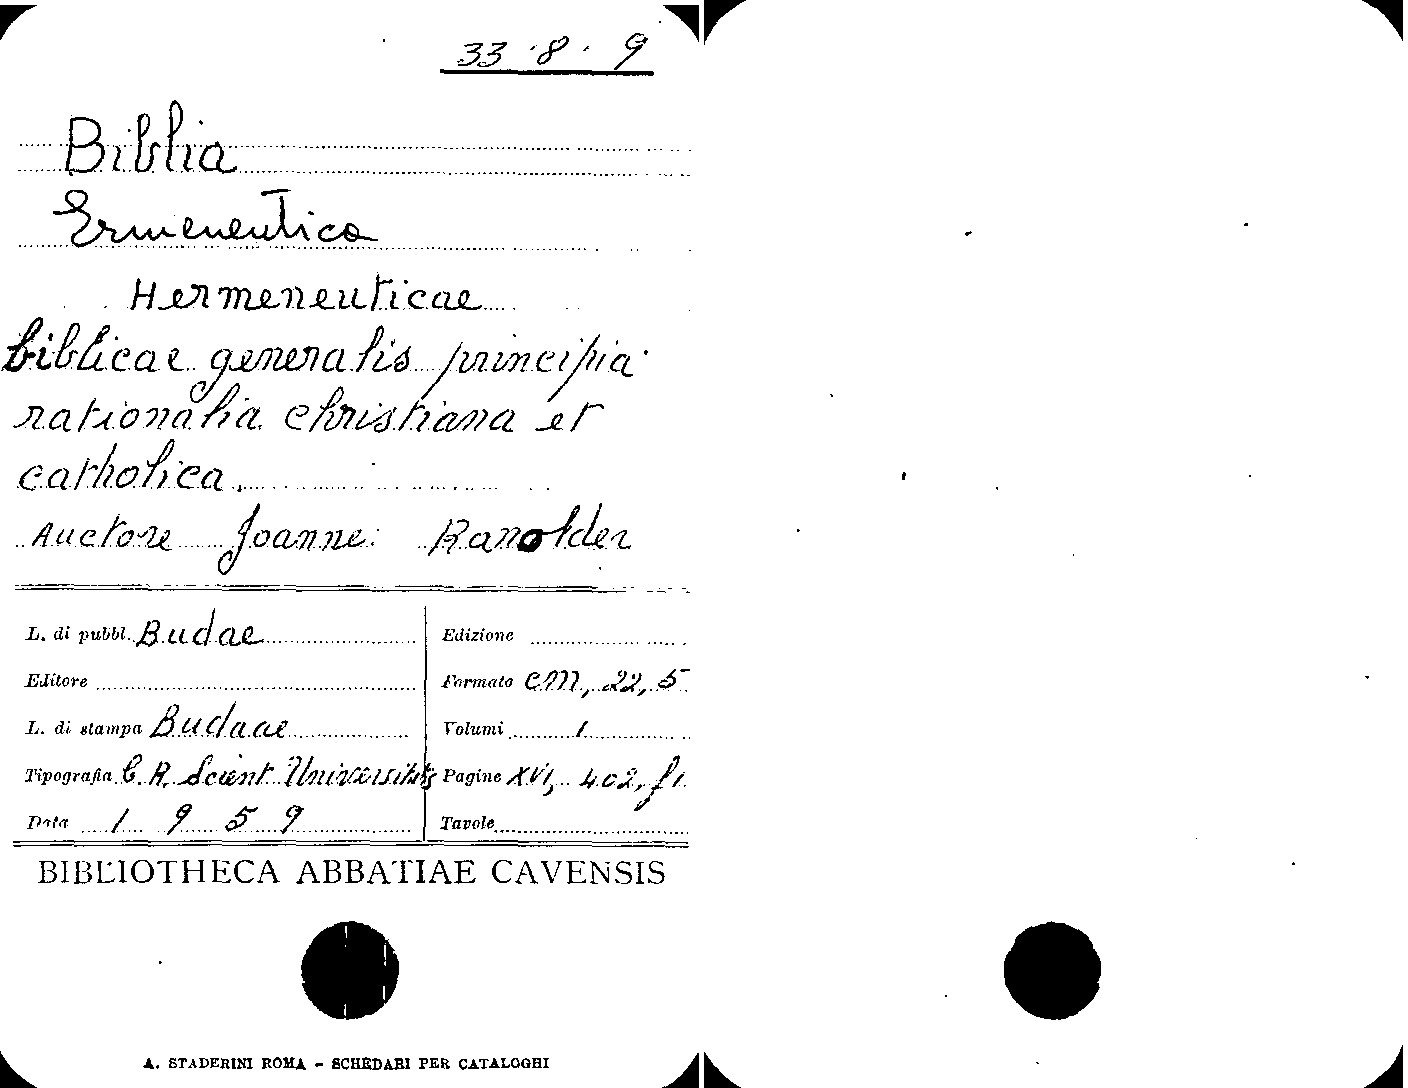 33 · 8 · 9
Biblia
Ermeneutica
Hermeneuticae
biblicae generalis principia
rationalia christiana et
catholica.
Auctore Joanne: Ranolder
L. di pubbl. Budae
Edizione
Editore
Formato cm, 22, 5
L. di stampa Budaae
Volumi 1
Tipografia C. R. Scient Universitatis
Pagine XVI, 402, f1
Data 1 9 5 9
Tavole
BIBLIOTHECA ABBATIAE CAVENSIS
A. STADERINI ROMA - SCHEDARI PER CATALOGHI